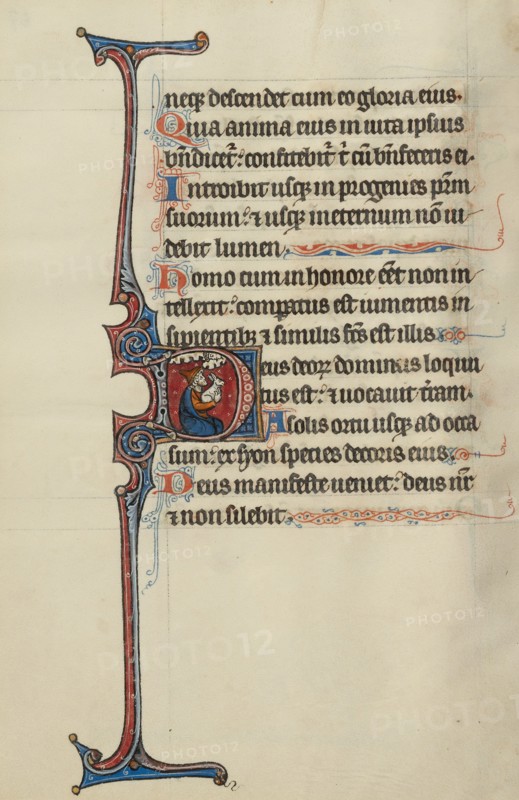 neqꝫ descendet cum eo gloria eius.
Quia anima eius in uita ipsius
bn̄dicet᷑: confitebit᷑ t̄ cū bn̄feceris ei.
Introibit usqꝫ in progenies pr̄m
suorum: ⁊ usqꝫ in eternum nō ui
debit lumen.
Homo cum in honore eēt non in
tellexit: compatus est iumentis in
sipientibꝫ ⁊ similis fc̄s est illis.
Deus deoꝝ dominus loqutu
tus est: ⁊ uocauit tr̄am.
A solis ortu usqꝫ ad occa
sum: ex syon species decoris eius.
Deus manifeste ueniet: deus nr̄
⁊ non silebit.
PHOTO12